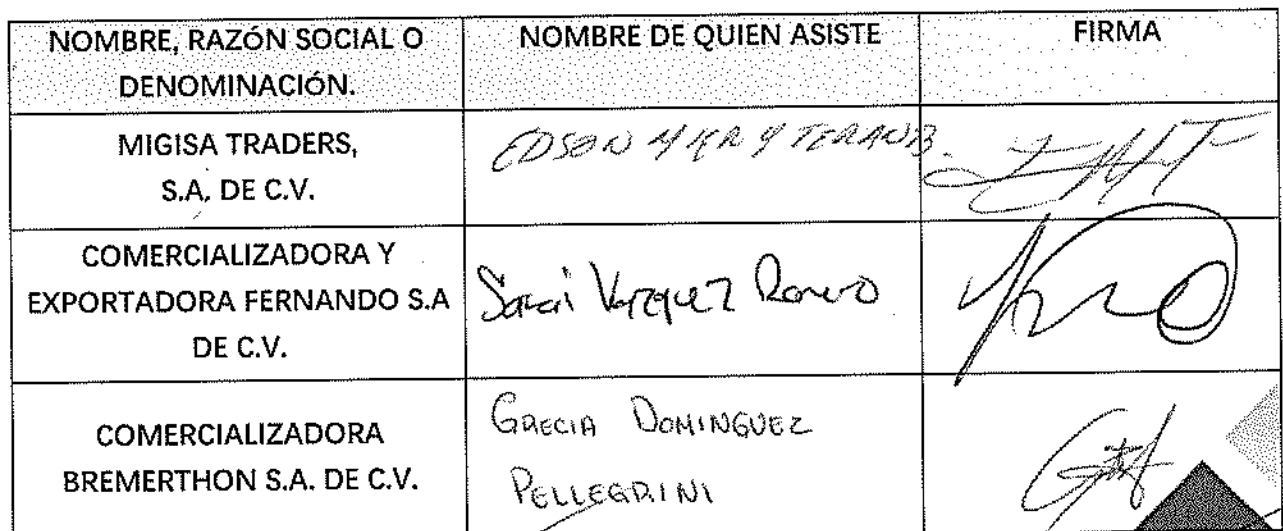 NOMBRE, RAZÓN SOCIAL O
DENOMINACIÓN.
NOMBRE DE QUIEN ASISTE
FIRMA
MIGISA TRADERS,
S.A. DE C.V.
EDSON
COMERCIALIZADORA Y
EXPORTADORA FERNANDO S.A
DE C.V.
Vazquez Romero
COMERCIALIZADORA
BREMERTHON S.A. DE C.V.
GRECIA DOMINGUEZ
PELLEGRINI